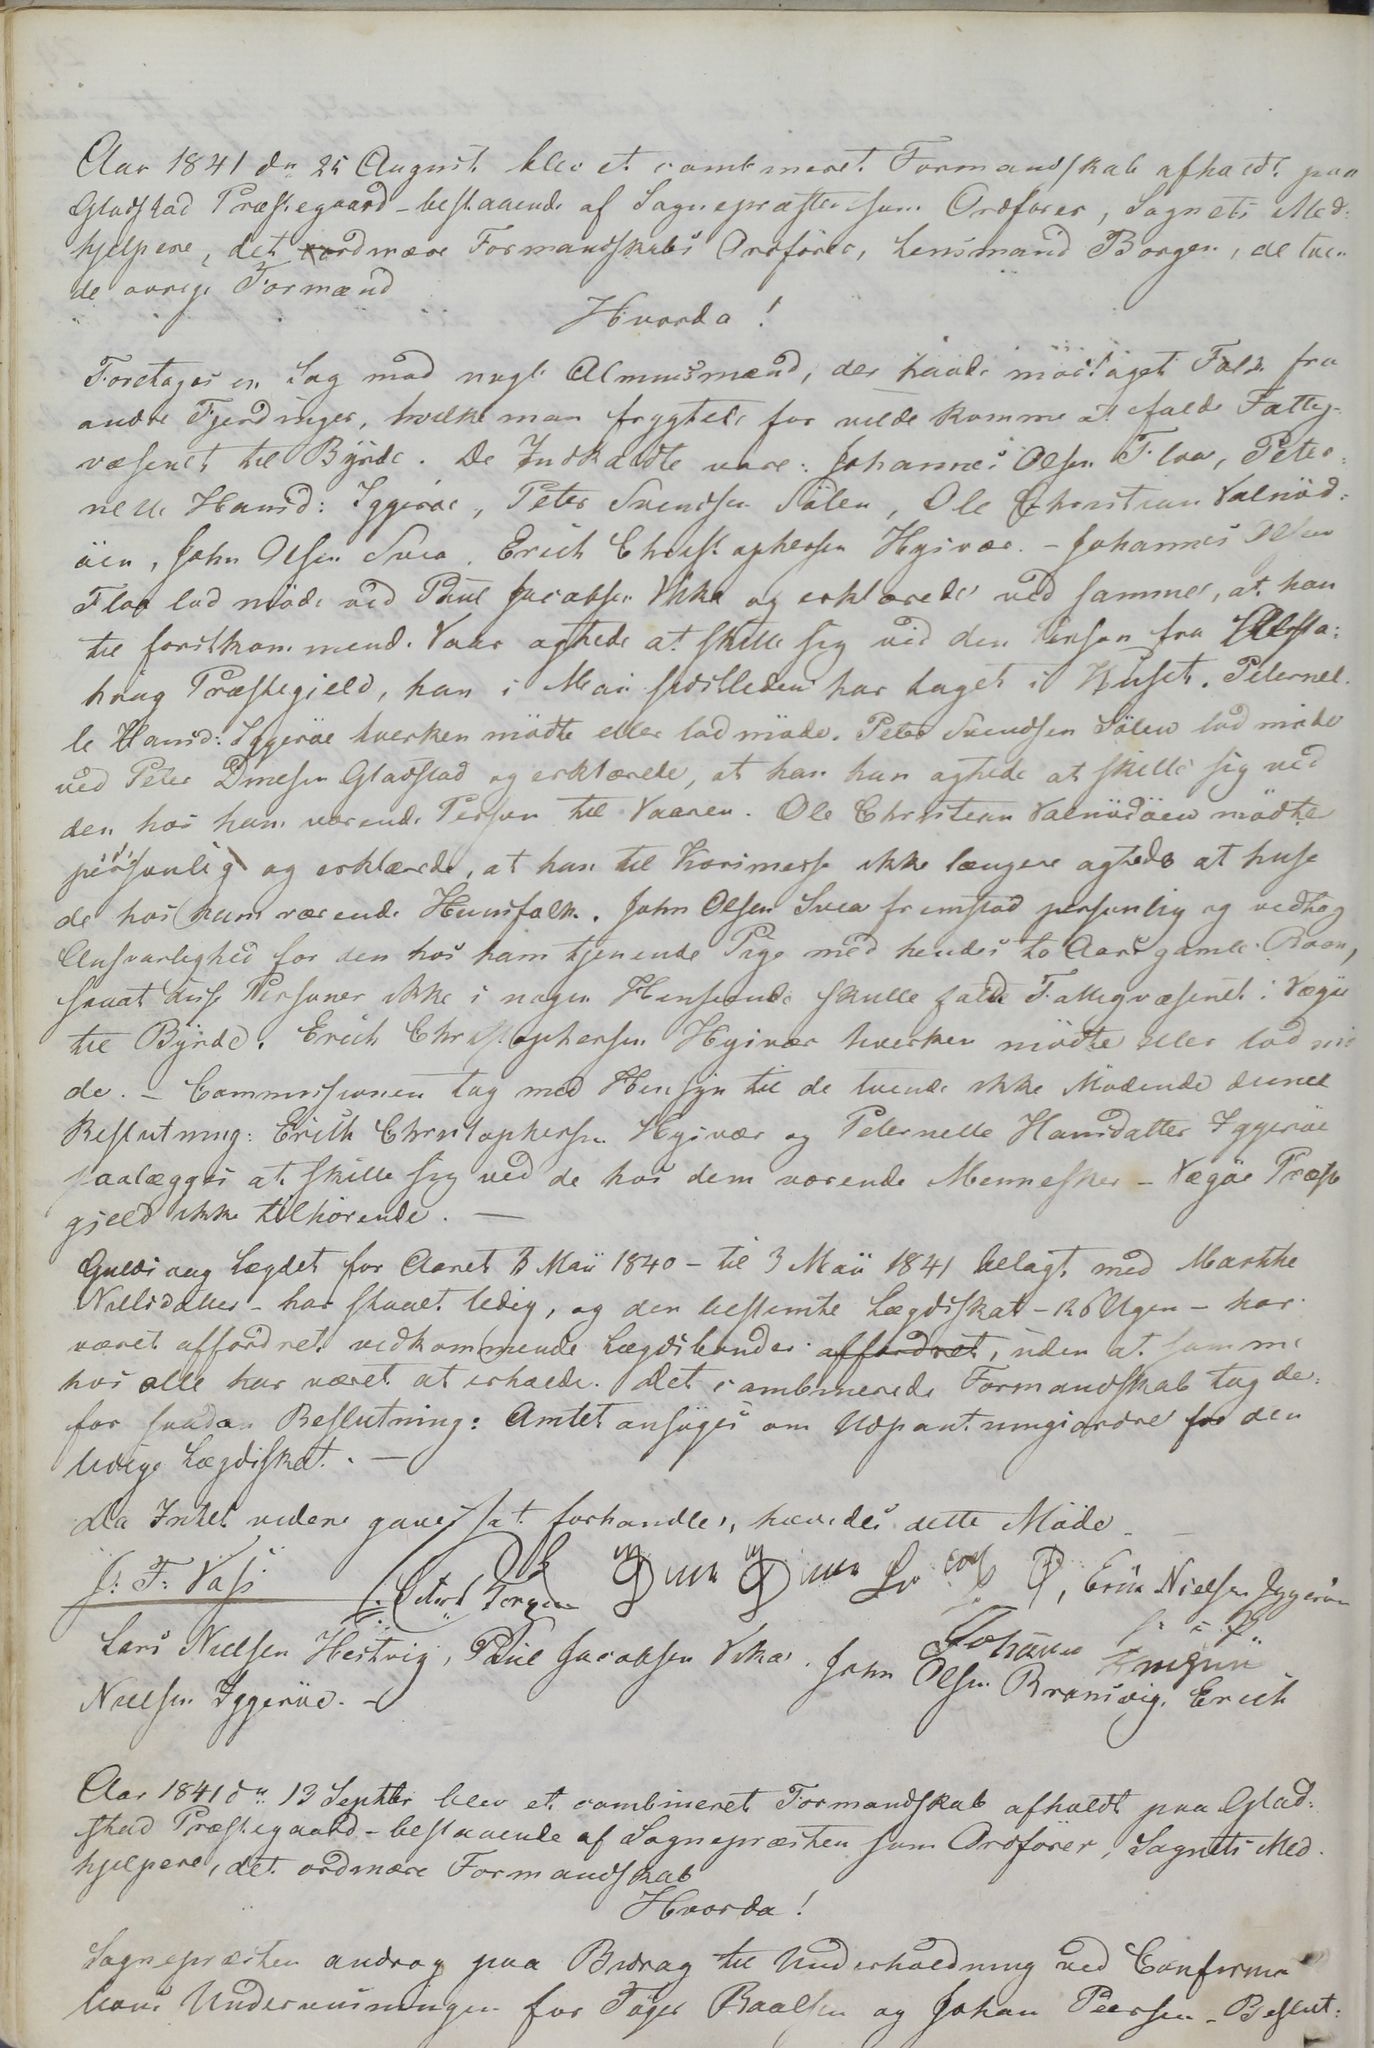 Aar 1841 dn 25 August blev et combineret Formandskab afholdt paa
Gladstad Præstegaard - bestaaende af Sognepræsten som Ordfører, Sognets Med:
hjelpere, det ordinære Formandskabs Ordfører, Lensmand Borgen, de tven
de øvrige Formænd
Hvorda!
Foretoges en Sag mod nogle Almuesmænd, der havde modtaget Folk fra
andre Fjerdinger, hvilke man frygtede for vilde komme at falde Fattig-
væsenet til Byrde. De Indkaldte vare: Johannes Olsen Floa, Peter-
nelle Hansd: Iggerøe, Peter Svendsen Sølen, Ole Christian Valnød-
øen, John Olsen Svea, Erich Christophersen Hysvær. - Johannes Olsen
Floa lod møde ved Paul Jacobsen Vika og erklærede ved samme, at han
til førstkommende Vaar agtede at skille sig ved den Person fra Alsta-
houg Præstegjeld, han i Mai sidstleden har taget i Huset. Peternel-
le Hansd: Iggerøe hverken mødte eller lod møde. Peter Svendsen Sølen lod møde
ved Peter Gladstad og erklærede, at han han agtede at skille sig ved
den hos ham værende Person til Vaaren. Ole Christian Valnødøen mødte
personlig og erklærede, at han til Korsmesse ikke længere agtede at huse
de hos ham værende Huusfolk. John Olsen Svea fremstod personlig og vedtog
Ansvarlighed for den hos ham tjenende Pige med hendes to Aars gamle Barn,
saaat disse Personer ikke i nogen Henseende skulle falde Fattigvæsenet i Vægøe
til Byrde. Erich Christophersen Hysvær hverken mødte eller lod mø
de. - Commissionen tog med Hensyn til de tvende ikke Mødende denne
Beslutning: Erich Christophersen Hysvær og Peternelle Hansdatter Iggerøe
paalægges at skille sig ved de hos dem værende Mennesker - Vægøe Præste
gjeld ikke tilhørende. -
Lægdet for Aaret 3 Maii 1840 - til 3 Maii 1841 belagt med Marthe
Nilsdatter - har staaet ledig, og den bestemte Lægdsskat - 12 ß Ugen - har
været affordret vedkommende Lægdsbønder affordret, uden at samme
hos alle har været at erholde. Det combinerede Formandskab tog der-
for saadan Beslutning: Amtet ansøges om Udpantningsordre for den
ledige Lægdsskat. -
Da Intet videre gaves at forhandles, hævedes dette Møde. -
J: F: Vasi Borgen Erik Nielsen Iggerøe
Johan
Lars Nielsen Hestvig, Paul Jacobsen Vika, John Olsen Bransvig, Erich
Nielsen Iggerøe. -
Aar 1841 dn 13 Septbr blev et combineret Formandskab afholdt paa Glad-
stad Præstegaard - bestaaende af Sognepræsten som Ordfører, Sognets Med-
hjelpere, det ordinære Formandskab
Hvorda!
Sognepræsten androg paa Bidrag til Underholdning ved Confirma
tions Undervisningen for Tøger Baalsen og Johan Peersen - Beslut: